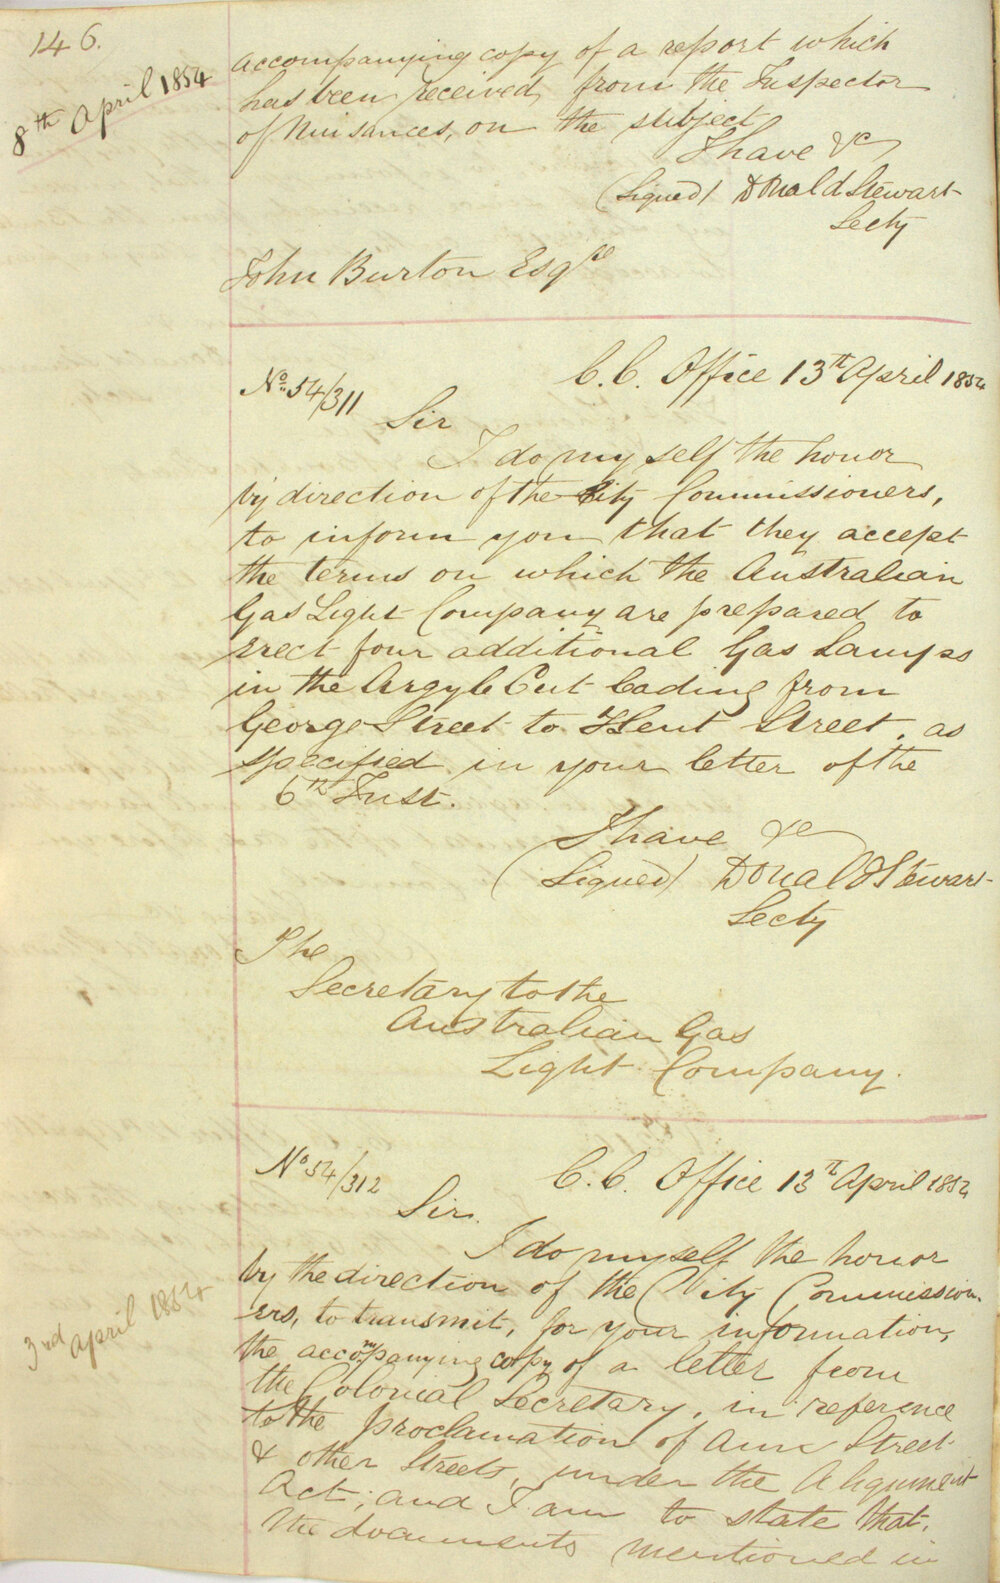 146.
8th April 1854
accompanying copy of a report which
has been received, from the Inspector
of Nuisances, on the subject
I have &c
(Signed) Donald Stewart
Secty
John Burton Esqre
No. 54/311
C.C. Office 13th April 1854
Sir
I do my self the honor
by direction of the City Commissioners,
to inform you that they accept
the terms on which the Australian
Gas Light Company are prepared to
erect four additional Gas Lamps
in the Argyle Cut leading from
George Street to Kent Street, as
specified in your letter of the
6th Inst.
I have &c
(Signed) Donald Stewart
Secty
The
Secretary to the
Australian Gas
Light Company.
No 54/312
C.C. Office 13th April 1854
Sir.
3rd April 1854
I do myself the honor
by the direction of the City Commission-
ers, to transmit, for your information,
the accompanying copy of a letter from
the Colonial Secretary, in reference
to the proclamation of Ann Street
& other Streets, under the Alignment
Act; and I am to state that,
the documents mentioned in